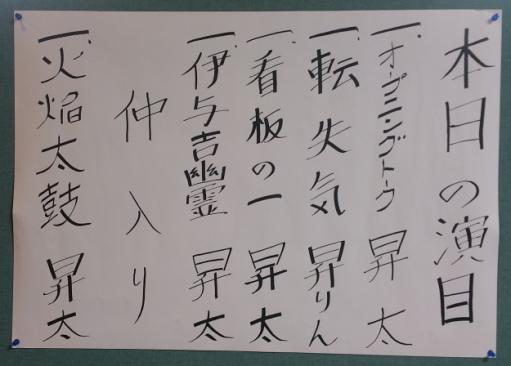 本日の演目
一、オープニングトーク 昇太
一、転失気 昇りん
一、看板の一 昇太
一、伊与吉幽霊 昇太
仲入り
一、火焔太鼓 昇太